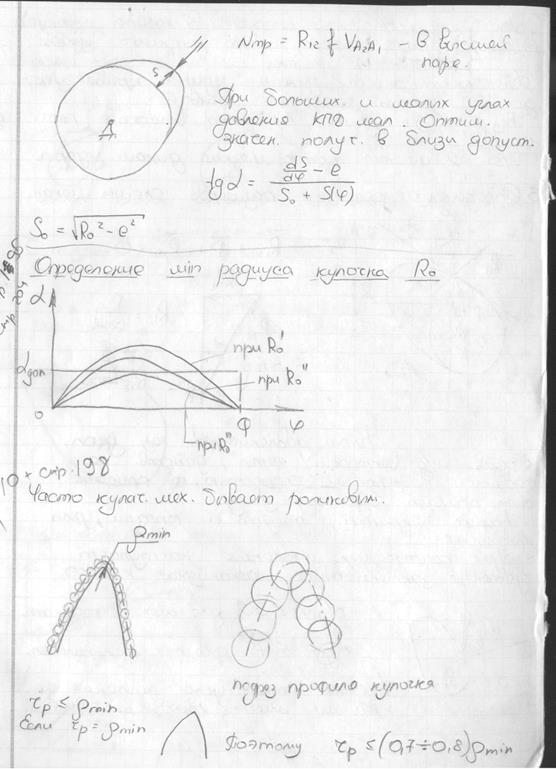 Nтр = R₁₂ f V_A₂A₁ - в высшей
паре.
S
Д
При больших и малых углах
давления КПД мал. Оптим.
значен. получ. в близи допуст.
tg α = (dS/dφ - e) / (S₀ + S(φ))
S₀ = √(R₀² - e²)
Определение min радиуса кулочка R₀
α
α доп
при R₀'
при R₀''
при R₀'''
0
Ф
φ
стр. 198
Часто кулач. мех. бывает роликовым.
ρmin
подрез профиля кулочка
τр ≤ ρmin
Если τр = ρmin
Поэтому τр ≤ (0,7÷0,8)ρmin